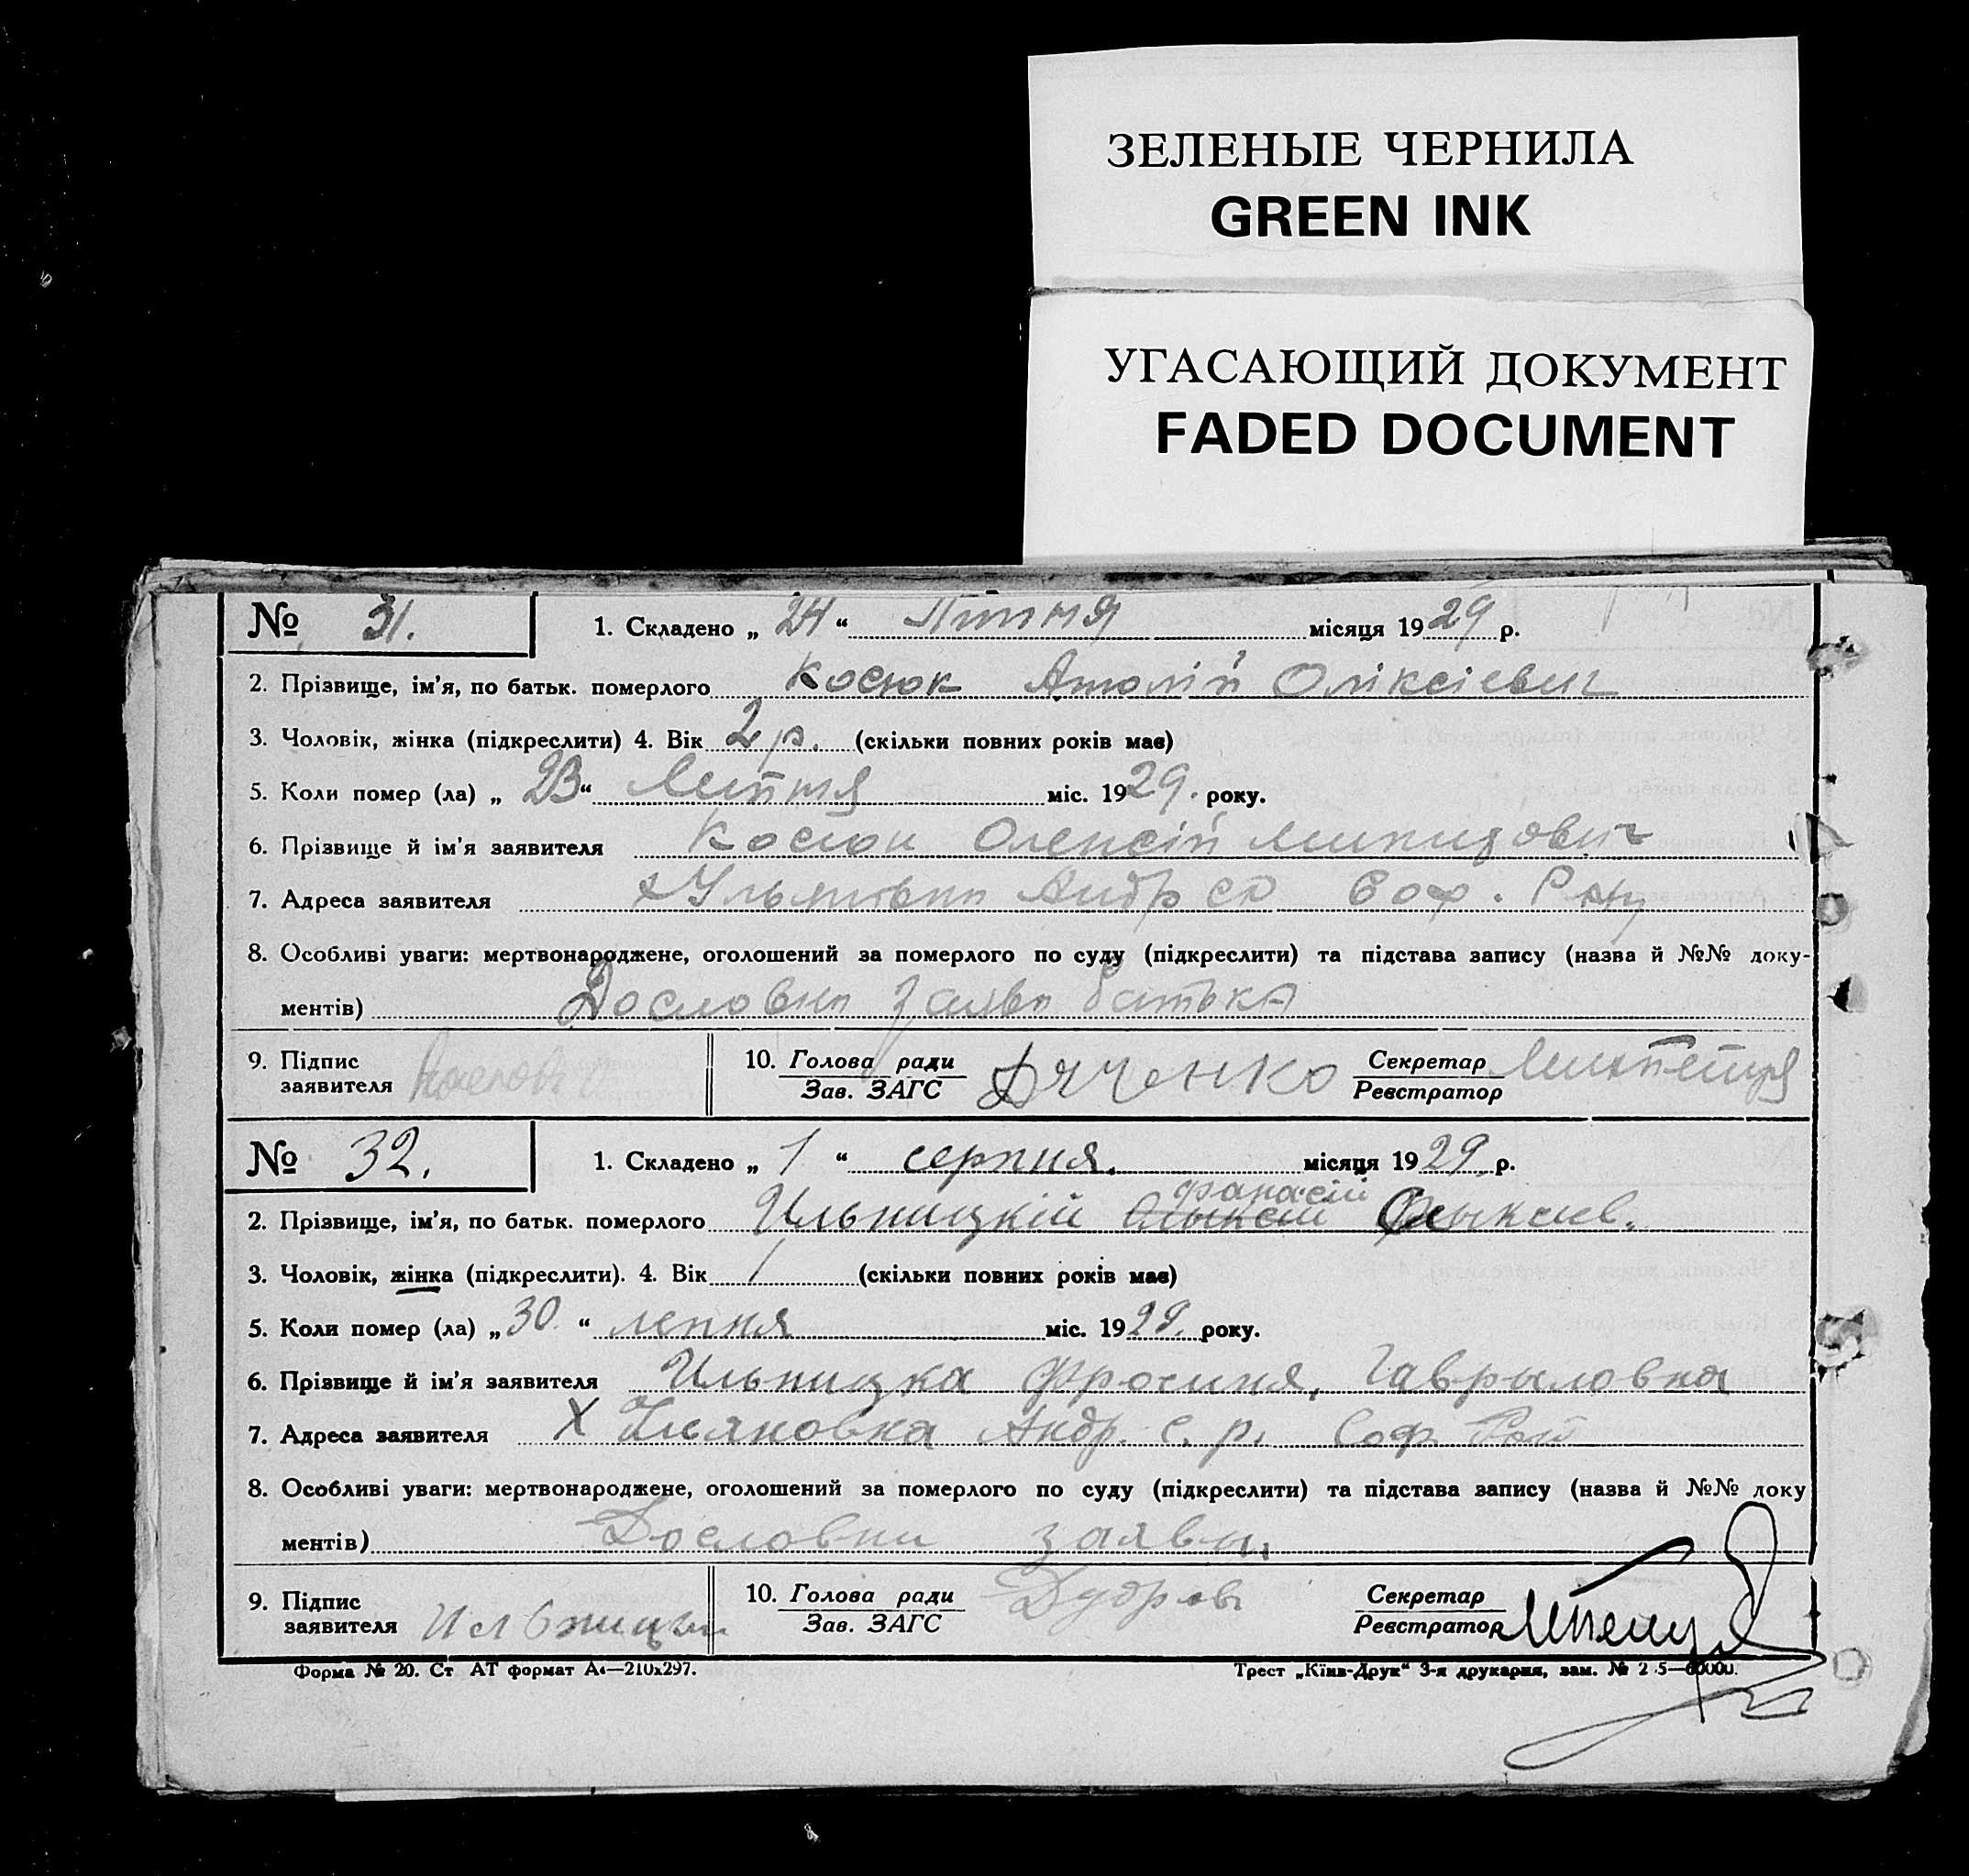 ЗЕЛЕНЫЕ ЧЕРНИЛА
GREEN INK
УГАСАЮЩИЙ ДОКУМЕНТ
FADED DOCUMENT
№ 31. 1. Складено „ 24 “ Липня місяця 1929 р.
2. Прізвище, ім’я, по батьк. померлого Косюк Анолій Оліксієвич
3. Чоловік, жінка (підкреслити) 4. Вік 2 р. (скільки повних років має)
5. Коли помер (ла) „ 23 “ Липня міс. 1929. року.
6. Прізвище й ім’я заявителя Косюк Олексій
7. Адреса заявителя х Соф.
8. Особливі уваги: мертвонароджене, оголошений за померлого по суду (підкреслити) та підстава запису (назва й №№ доку-
ментів) Дословни заяви батька
9. Підпис заявителя 10. Голова ради Зав. ЗАГС Дяченко Секретар Реєстратор
№ 32. 1. Складено „ 1 “ серпня. місяця 1929. р.
2. Прізвище, ім’я, по батьк. померлого Ильницкій Фанасій Олыксив.
3. Чоловік, жінка (підкреслити). 4. Вік 1 (скільки повних років має)
5. Коли помер (ла) „ 30 “ лепня міс. 1929. року.
6. Прізвище й ім’я заявителя Ильницка Фросиня, Гаврыловна
7. Адреса заявителя Х Ульяновка Андр. с. р. Соф.
8. Особливі уваги: мертвонароджене, оголошений за померлого по суду (підкреслити) та підстава запису (назва й №№ доку
ментів) Дословни заявы.
9. Підпис заявителя 10. Голова ради Зав. ЗАГС Секретар Реєстратор
Форма № 20. Ст АТ формат А4—210x297. Трест „Київ-Друк“ 3-я друкарня, зам. №